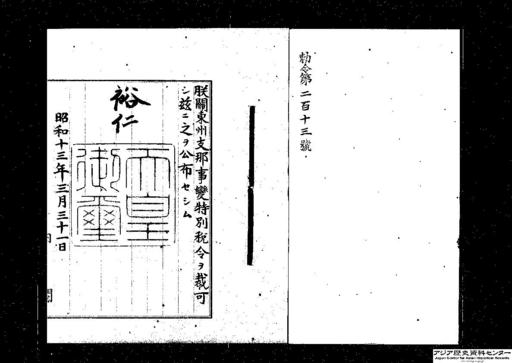 勅令第二百十三號
朕關東州支那事變特別税令ヲ裁可
シ茲ニ之ヲ公布セシム
裕仁
天皇
御璽
昭和十三年三月三十一日
アジア歴史資料センター
Japan Center for Asian Historical Records